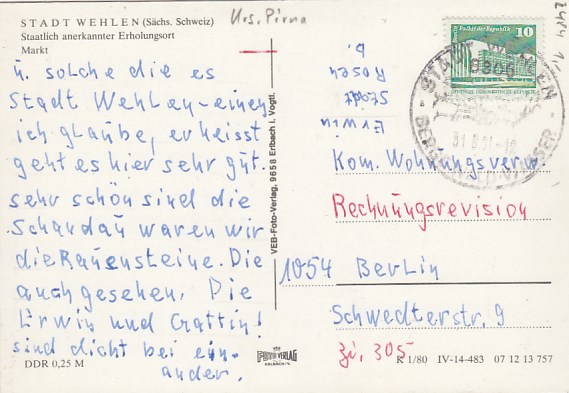 STADT WEHLEN (Sächs. Schweiz)
Staatlich anerkannter Erholungsort
Markt
Krs. Pirna
ü. solche die es
Stadt Wehlen - einen
ich glaube, er heisst
geht es hier sehr gut.
sehr schön sind die
Schandau waren wir
die Rauensteine. Die
auch gesehen. Die
Erwin und Gattin!
sind dicht bei ein-
ander.
DDR 0,25 M
VEB-Foto-Verlag, 9658 Erlbach i. Vogtl.
FOTO VERLAG
ERLBACH
10
STADT WEHLEN
Erwin
Kom. Wohnungsverw.
Rechnungsrevision
1054 Berlin
Schwedterstr. 9
Zi. 305
K 1/80 IV-14-483 07 12 13 757